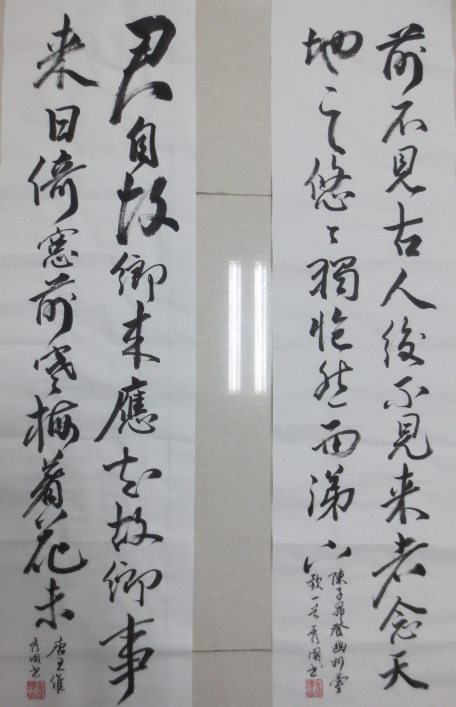 前不見古人後不見来者念天
地之悠々獨愴然而涕下
陳子昂登幽州臺
歌一首秀國书
君自故鄉来應知故鄉事
来日倚窓前寒梅着花未
唐王維
秀國书